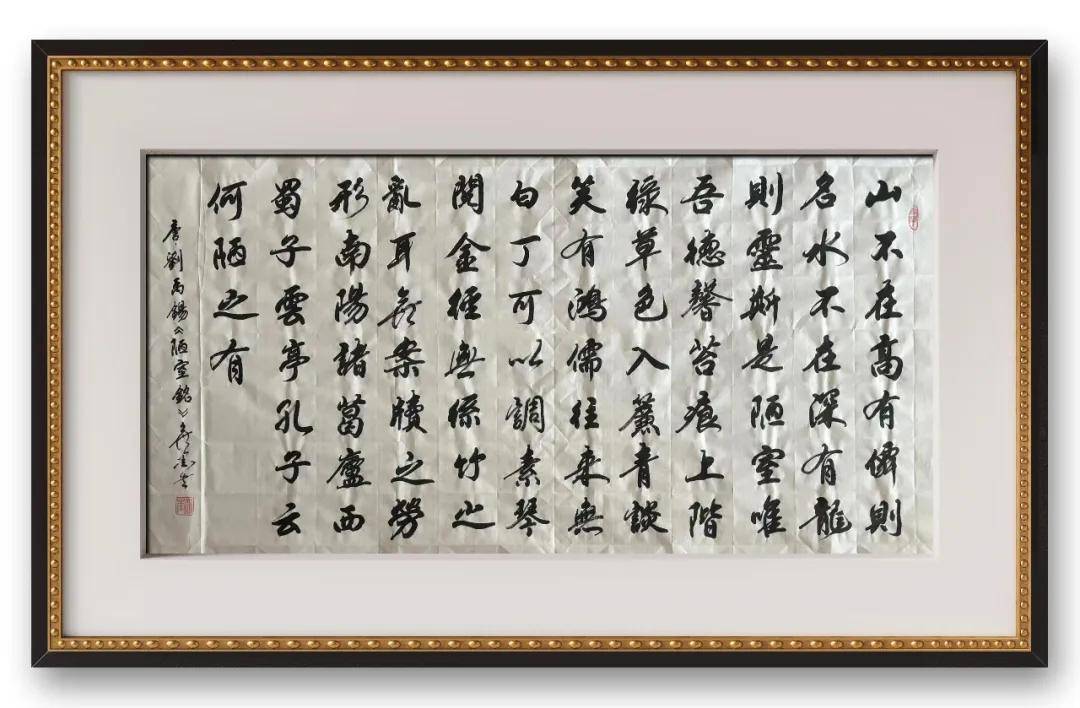 山不在高有僊則
名水不在深有龍
則靈斯是陋室唯
吾德馨苔痕上階
緑草色入簾青談
笑有鴻儒往来無
白丁可以調素琴
閱金經無絲竹之
亂耳無案牘之勞
形南陽諸葛廬西
蜀子雲亭孔子云
何陋之有
唐劉禹錫《陋室銘》